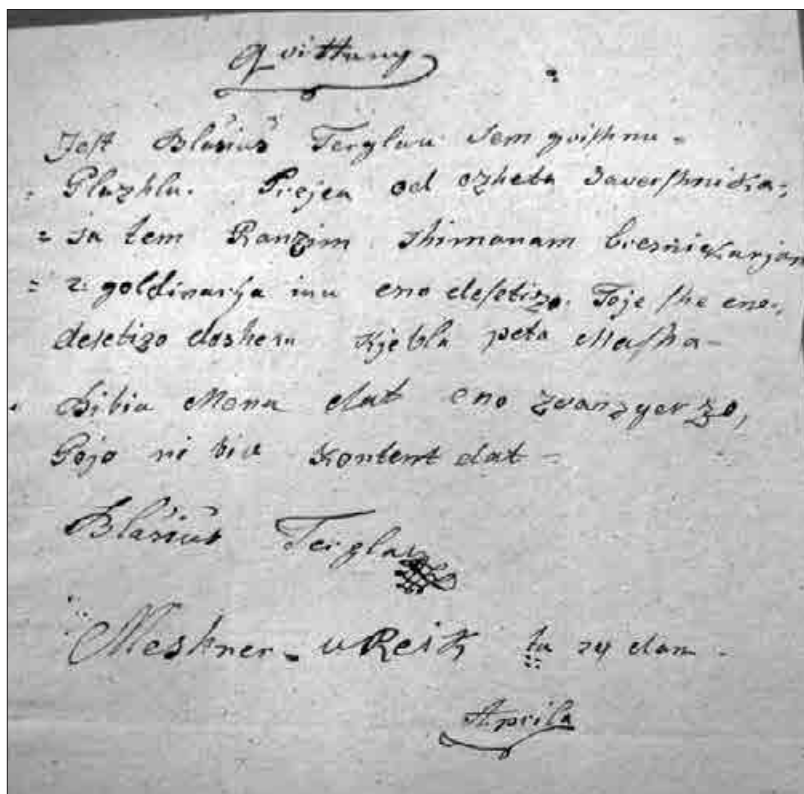 Quittung
Jest Blasius Terglau sem gvishnu -
= Plazhlu. Prejea od ozheta Savershnika,
= sa tem Ranzim Shimonam
= 2 goldinarja inu eno desetizo. Toje she ene,
desetizo doshena Kjebla peta Masha -
Bibia Mena dat eno zvanzgerzo,
Pojo ni biu Kontent dat -
Blasius Terglau
Meshner - v Reik ta 24 dan -
Aprila